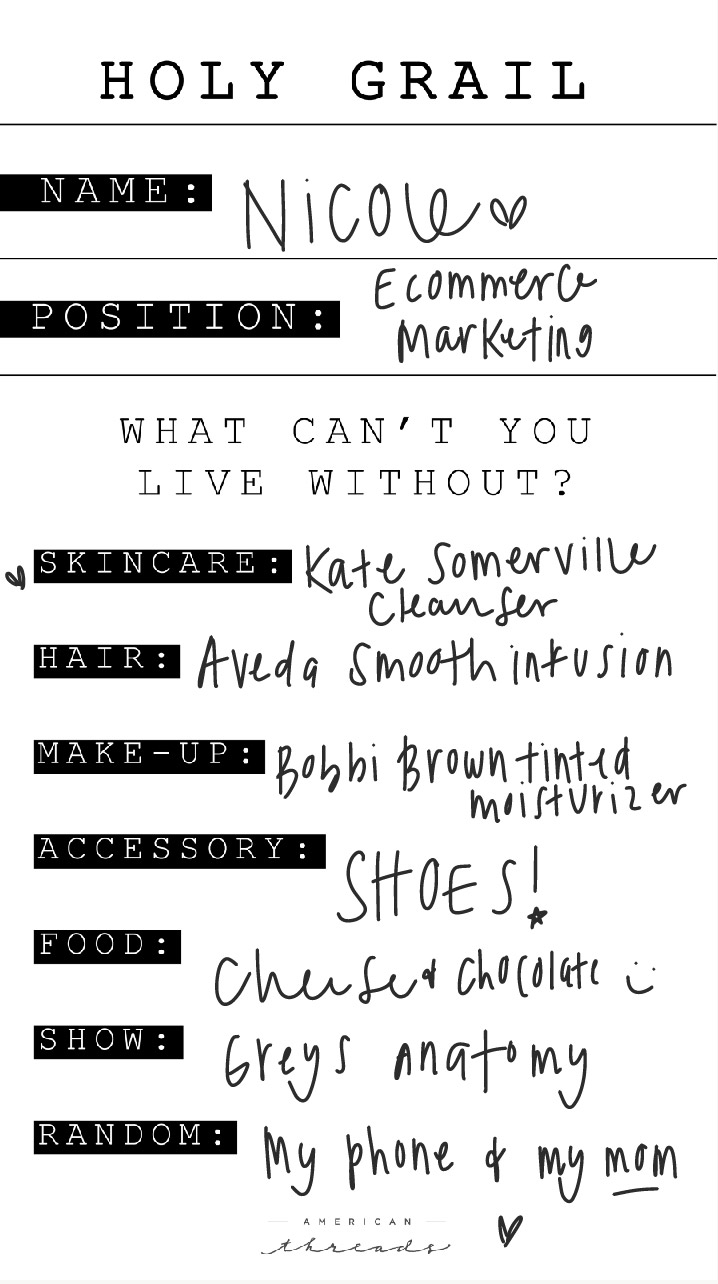 HOLY GRAIL
NAME: Nicole
POSITION: Ecommerce
Marketing
WHAT CAN'T YOU
LIVE WITHOUT?
SKINCARE: Kate Somerville
Cleanser
HAIR: Aveda Smooth infusion
MAKE-UP: Bobbi Brown tinted
moisturizer
ACCESSORY: SHOES!
FOOD: Cheese & chocolate :)
SHOW: Greys anatomy
RANDOM: My phone & my mom
AMERICAN
threads